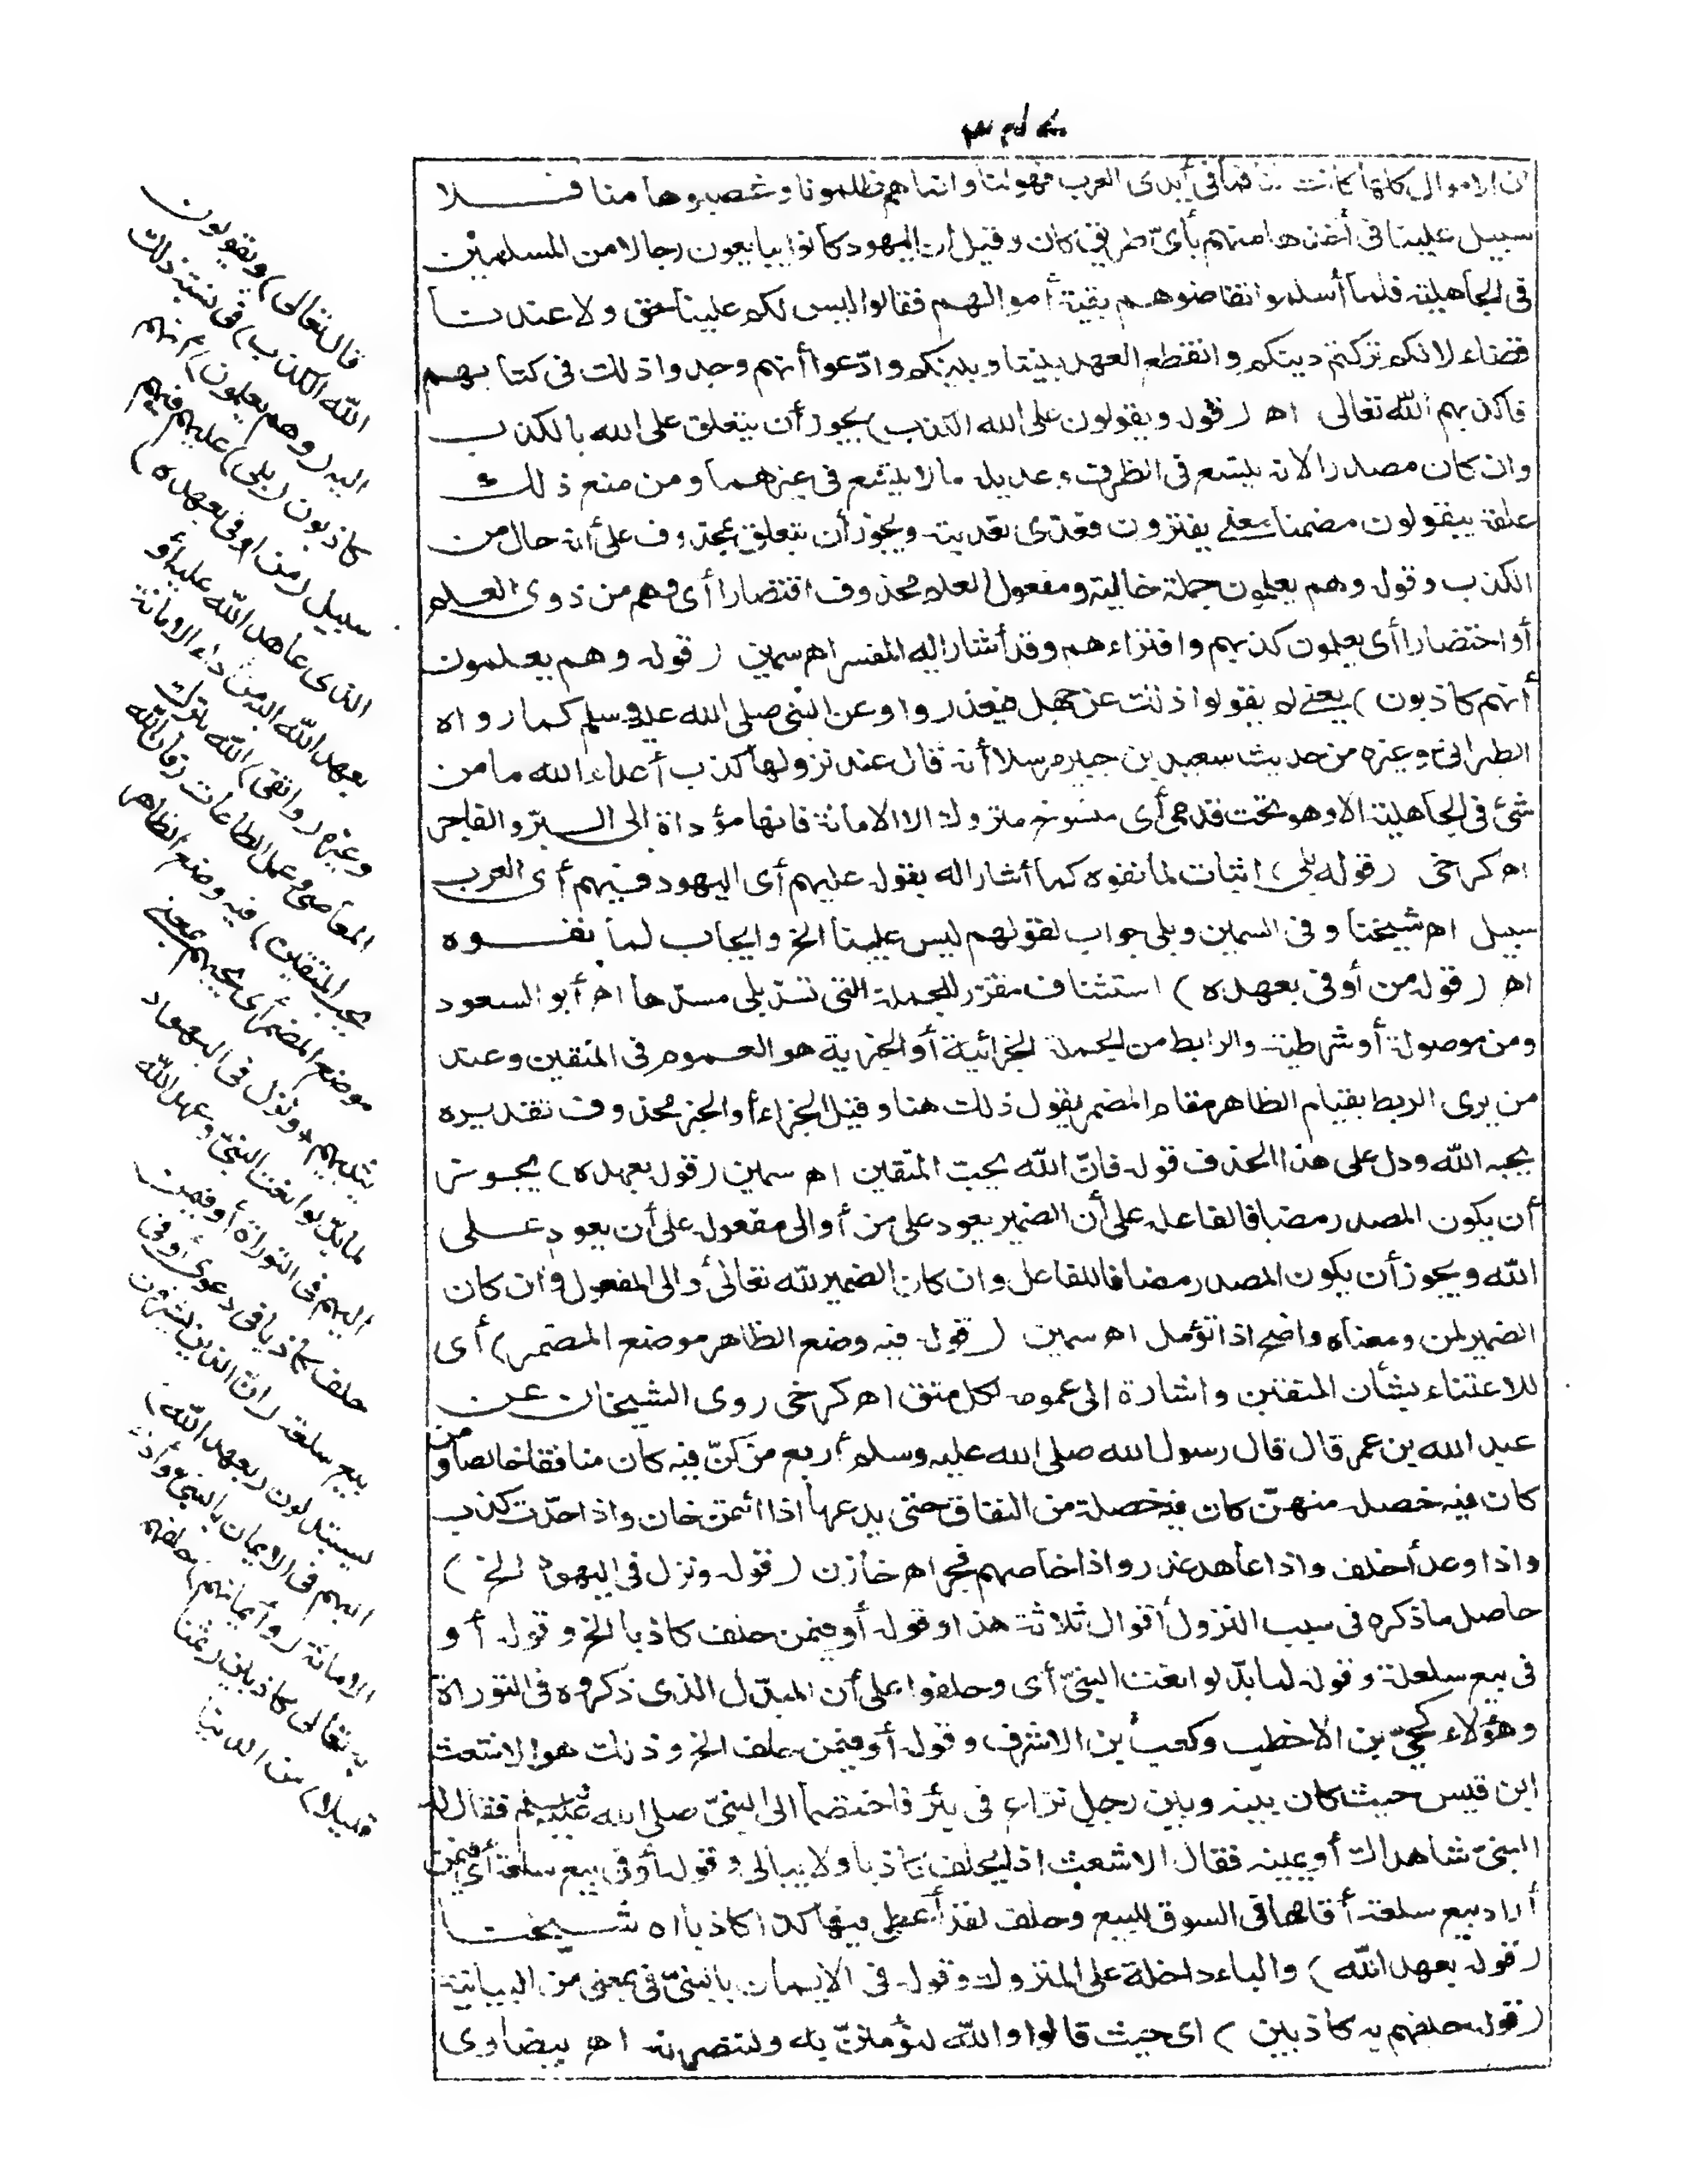 ان الاموال كلها كانت لنا فما في أيدى العرب فهو لنا وانما هم ظلمونا وغصبوها منا فلا
سبيل علينا فى أخذها منهم بأىّ طريق كان وقيل ان اليهود كانوا يبايعون رجالا من المسلمين
فى الجاهلية فلما أسلموا تقاضوهم بقية أموالهم فقالوا ليس لكم علينا حق ولا عندنا
قضاء لانكم تركتم دينكم وانقطع العهد بيننا وبينكم وادّعوا أنهم وجدوا ذلك فى كتابهم
فأكذبهم الله تعالى اه (قوله ويقولون على الله الكذب) يجوز أن يتعلق على الله بالكذب
وان كان مصدرا لانه يتسع فى الظرف وعديله مالا يتسع فى غيرهما ومن منع ذلك
علقه بيقولون مضمنا معنى يفترون فعدّى تعديته ويجوز أن يتعلق بمحذوف على أنه حال من
الكذب وقوله وهم يعلمون جملة حالية ومفعول العلم محذوف اقتصارا أى وهم من ذوى العلم
أو اختصارا أى يعلمون كذبهم وافتراءهم وقد أشار اليه المفسر اه سمين (قوله وهم يعلمون
أنهم كاذبون) يعنى لم يقولوا ذلك عن جهل فيعذروا وعن النبى صلى الله عليه وسلم كما رواه
الطبرانى وغيره من حديث سعيد بن جبير مرسلا أنه قال عند نزولها كذب أعداء الله ما من
شئ فى الجاهلية الا وهو تحت قدمى أى منسوخ متروك الا الامانة فانها مؤداة الى البرّ والفاجر
اه كرخى (قوله بلى) اثبات لما نفوه كما أشار اله بقوله عليهم أى اليهود فيهم أى العرب
سبيل اه شيخنا وفى السمين وبلى جواب لقولهم ليس علينا الخ وايجاب لما نفوه
اه (قوله من أوفى بعهده) استئناف مقرّر للجملة التى تسدّ بلى مسدّها اه أبو السعود
ومن موصولة أو شرطية والرابط من الجملة الجزائية أو الخبرية هو العموم فى المتقين وعند
من يرى الربط بقيام الظاهر مقام المضمر يقول ذلك هنا وقيل الجزاء أو الخبر محذوف تقديره
يحبه الله ودل على هذا الحذف قوله فانّ الله يحبّ المتقين اه سمين (قوله بعهده) يجوز
أن يكون المصدر مضافا لفاعله على أن الضمير يعود على من أو الى مفعوله على أن يعود على
الله ويجوز أن يكون المصدر مضافا للفاعل وان كان الضمير لله تعالى أو الى المفعول وان كان
الضمير لمن ومعناه واضح اذا تؤمل اه سمين (قوله فيه وضع الظاهر موضع المضمر) أى
للاعتناء بشأن المتقين واشارة الى عمومه لكل متق اه كرخى روى الشيخان عن
عبد الله بن عمر قال قال رسول الله صلى الله عليه وسلم أربع من كنّ فيه كان منافقا خالصا ومن
كان فيه خصلة منهنّ كان فيه خصلة من النفاق حتى يدعها اذا ائتمن خان واذا حدّث كذب
واذا وعد أخلف واذا عاهد غدر واذا خاصم فجر اه خازن (قوله ونزل فى اليهود الخ)
حاصل ما ذكره فى سبب النزول أقوال ثلاثة هذا وقوله أو فيمن حلف كاذبا الخ وقوله أو
فى بيع سلعة وقوله لما بدّلوا نعت النبىّ أى وحلفوا على أن المبدّل الذى ذكروه فى التوراة
وهؤلاء كحيىّ بن الاخطب وكعب بن الاشرف وقوله أو فيمن حلف الخ وذلك هو الاشعث
ابن قيس حيث كان بينه وبين رجل نزاع فى بئر فاختصما الى النبىّ صلى الله عليه وسلم فقال له
النبىّ شاهداك أو يمينه فقال الاشعث اذا يحلف كاذبا ولا يبالى وقوله أو فى بيع سلعة أى فيمن
أراد بيع سلعة أقامها فى السوق للبيع وحلف لقد أعطى فيها كذا كاذبا اه شيخنا
(قوله بعهد الله) والباء داخلة على المتروك وقوله فى الايمان بالنبىّ فى بمعنى من البيانية
(قوله حلفهم به كاذبين) أى حيث قالوا والله لنؤمننّ به ولننصرنه اه بيضاوى
قال تعالى (ويقولون على
الله الكذب) فى نسبة ذلك
اليه (وهم يعلمون) أنهم
كاذبون (بلى) عليهم فيهم
سبيل (من أوفى بعهده)
الذى عاهد الله عليه أو
بعهد الله اليه من أداء الامانة
وغيره (واتقى) الله بترك
المعاصى وعمل الطاعات (فان الله
يحب المتقين) فيه وضع الظاهر
موضع المضمر أى يحبهم بمعنى
يثيبهم * ونزل فى اليهود
لما بدّلوا نعت النبىّ وعهد الله
اليهم فى التوراة أو فيمن
حلف كاذبا فى دعوى أو فى
بيع سلعة (ان الذين يشترون)
يستبدلون (بعهد الله)
اليهم فى الايمان بالنبى وأداء
الامانة (وأيمانهم) حلفهم
به تعالى كاذبين (ثمنا
قليلا) من الدنيا